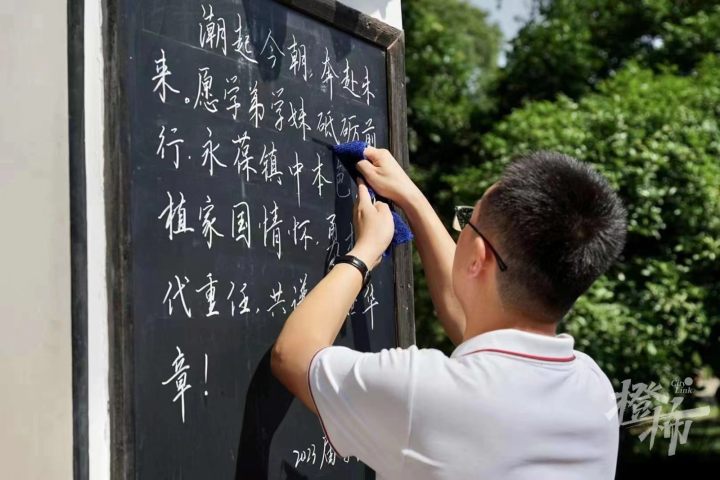 潮起今朝,奔赴未
来。愿学弟学妹砥砺前
行,永葆镇中本色
植家国情怀,勇
代重任,共谱 华
章!
2023届
City
Link
橙柿